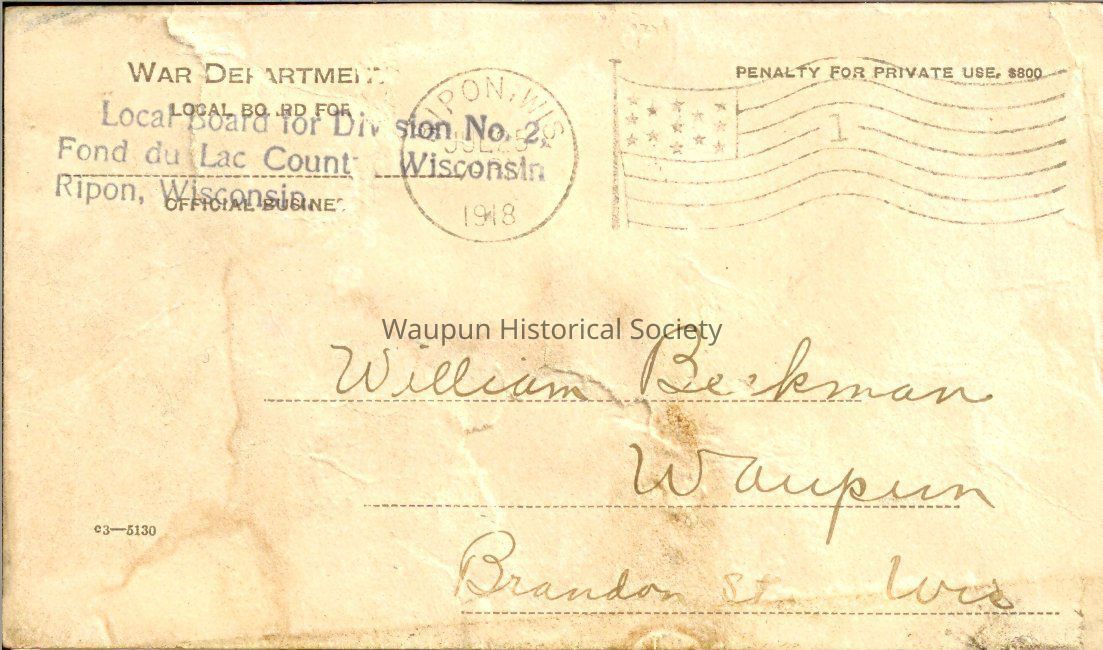 WAR DEPARTMENT
LOCAL BOARD FOR
Local Board for Division No. 2,
Fond du Lac County Wisconsin
Ripon, Wisconsin.
OFFICIAL BUSINESS
RIPON, WIS
JUL
1918
PENALTY FOR PRIVATE USE, $800
1
Waupun Historical Society
William Beekman
Waupun
Brandon St. Wis
c3—5130